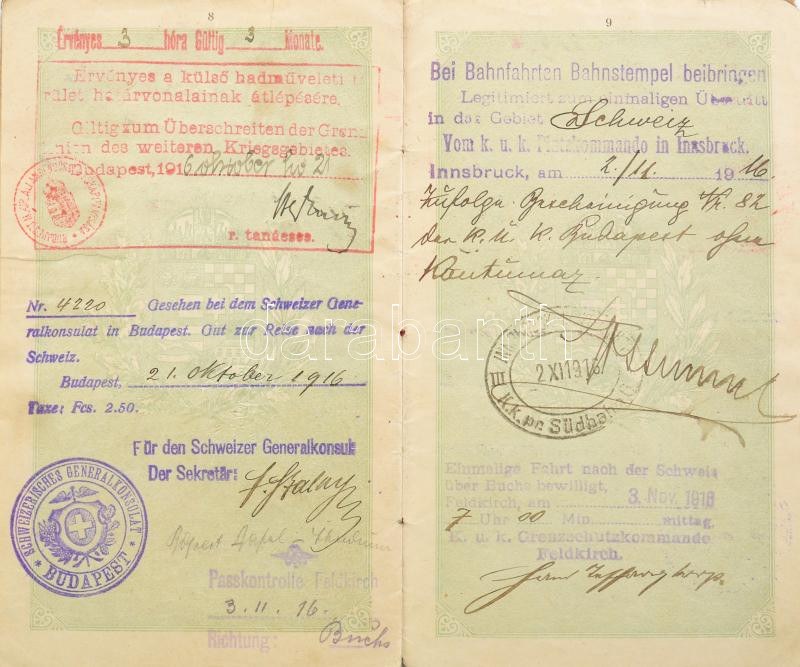 8
Érvényes 3 hóra Gültig 3 Monate.
Érvényes a külső hadműveleti te
rület határvonalainak átlépésére.
Giltig zum Überschreiten der Gren
linien des weiteren Kriegsgebietes.
Budapest, 1916 október hó 21
r. tanácsos.
Nr. 4220 Gesehen bei dem Schweizer Gene-
ralkonsulat in Budapest. Gut zur Reise nach der
Schweiz.
Budapest, 21. Oktober 1916
Taxe: Fcs. 2.50.
Für den Schweizer Generalkonsul:
Der Sekretär:
SCHWEIZERISCHES GENERALKONSULAT
BUDAPEST
Passkontrolle Feldkirch
3. 11. 16.
Richtung: Buchs
9
Bei Bahnfahrten Bahnstempel beibringen
Legitimiert zum einmaligen Übertritt
in das Gebiet Schweiz
Vom k. u. k. Platzkommando in Innsbruck.
Innsbruck, am 2/11. 1916
Zufolge Bescheinigung Nr. 82
der K. u. k. Budapest ohne
Kontumaz.
2 XI 1916
III K.k. pr. Südbahn
Einmalige Fahrt nach der Schweiz
über Buchs bewilligt,
Feldkirch, am 3. Nov. 1916
7 Uhr 00 Min. mittag.
K. u. k. Grenzschutzkommando
Feldkirch.
darabanth